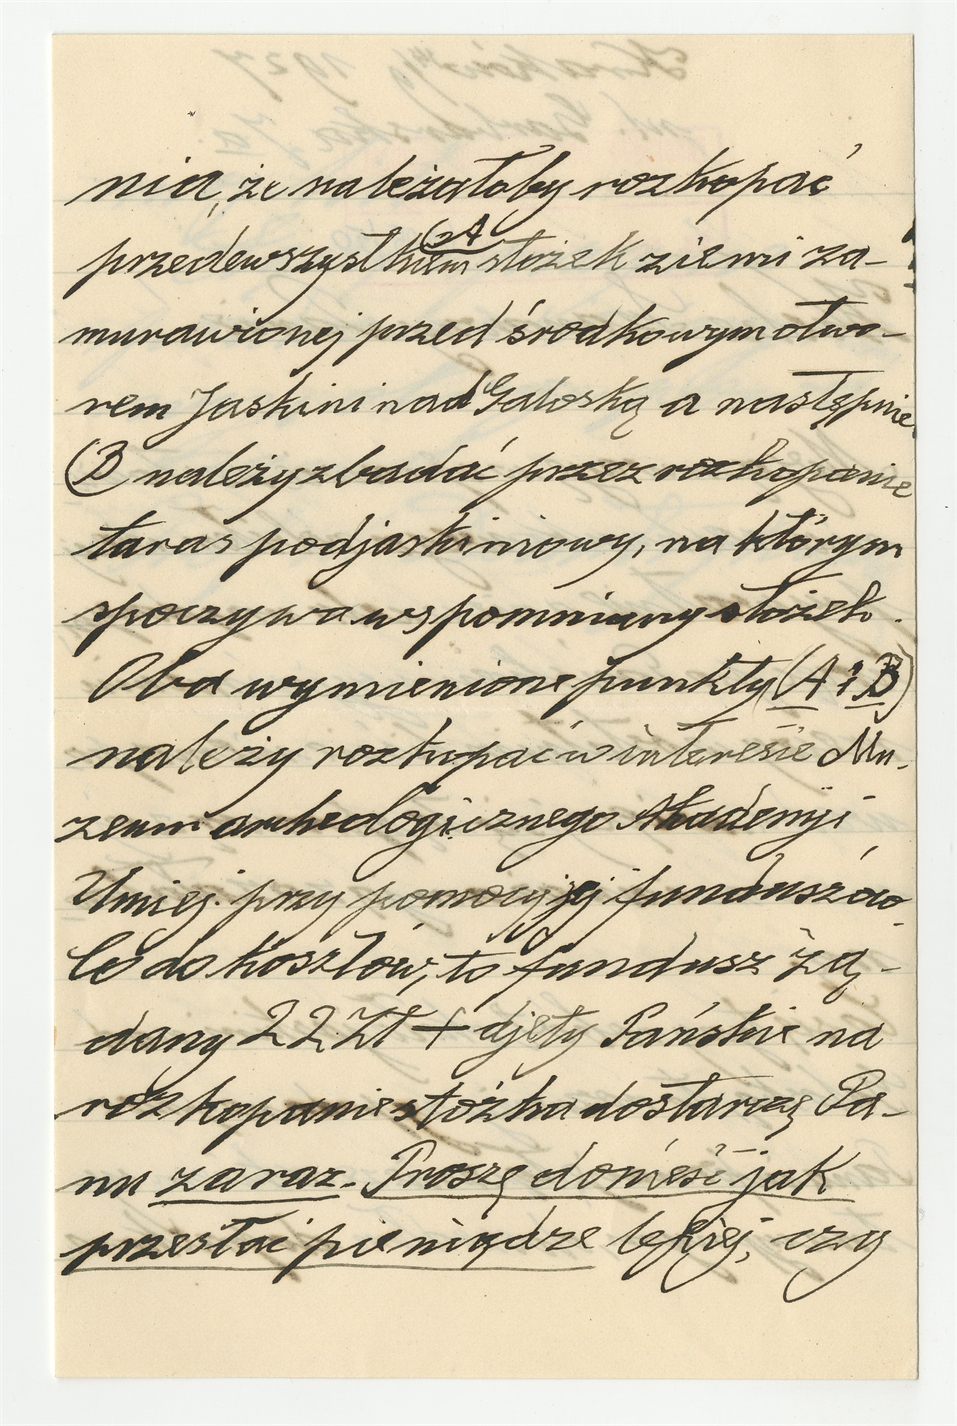 nia, że należałoby rozkopać
(A
przedewszystkiem stożek ziemi za-
murawionej przed środkowym otwo-
rem Jaskini nad Galoską a następnie
(B) należy zbadać przez rozkopanie
taras podjaskiniowy, na którym
spoczywa wspomniany stożek.
Oba wymienione punkty (A i B)
należy rozkopać w interesie Mu-
zeum archeologicznego Akademji
Umiej. przy pomocy jej funduszów
Co do kosztów, to fundusz żą-
dany 22 Zł + djety Pańskie na
rozkopanie stożka dostarczę Pa-
nu zaraz. Proszę donieść jak
przesłać pieniądze lepiej, czy